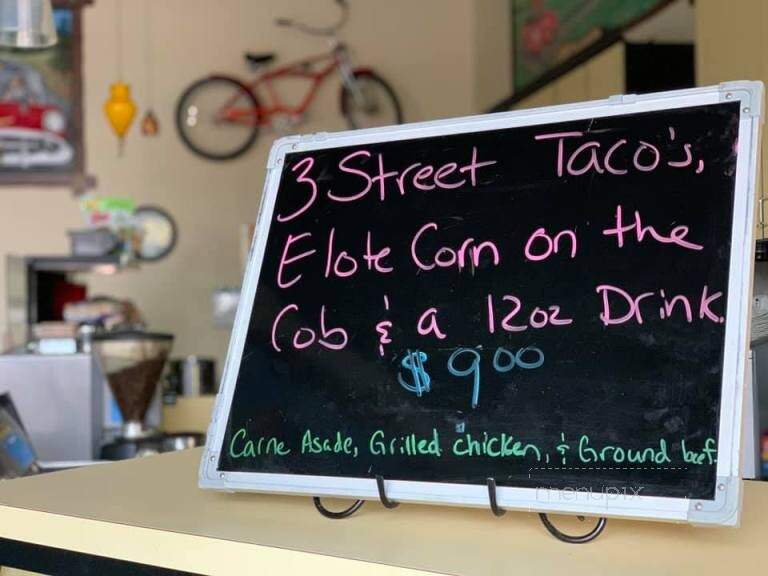 3 Street Taco's,
Elote Corn on the
Cob & a 12oz Drink.
$9.00
Carne Asade, Grilled chicken, & Ground beef.
menupix